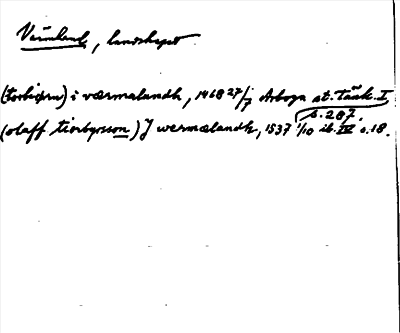 Värmland, landskapet
(torbiørn) i værmalandh, 1468 27/7 Arboga st. Tänk. I
s. 287.
(olaff tiorbyrsson) J wermælandh, 1537 1/10 ib. IV s. 18.